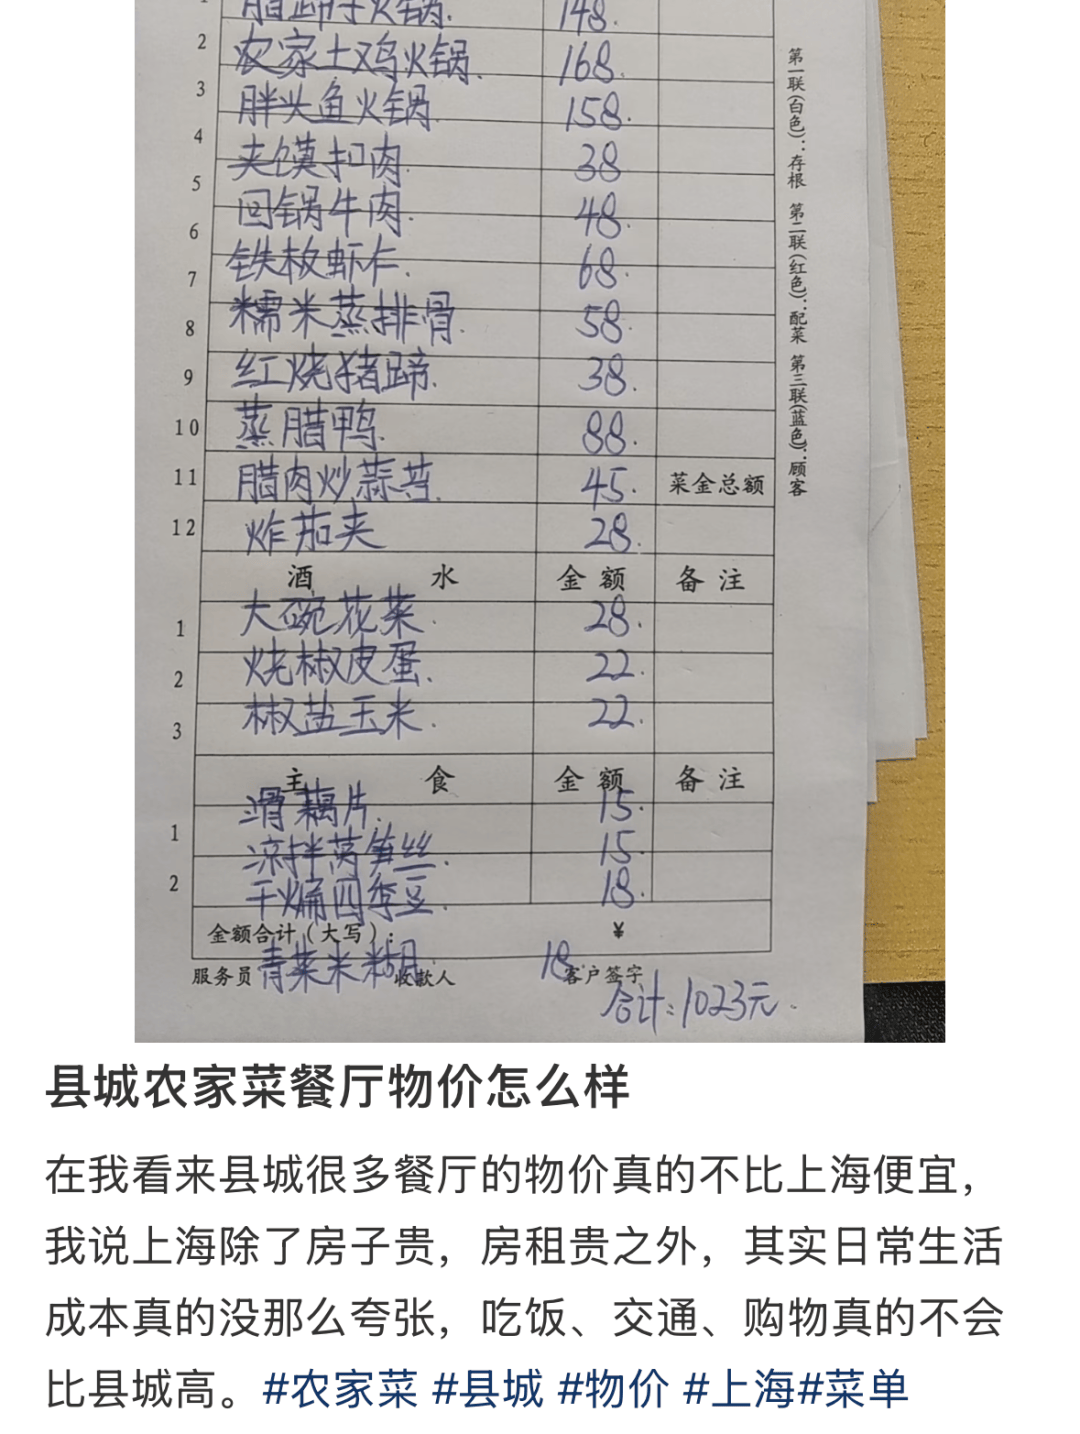 1 腊蹄子火锅. 148.
2 农家土鸡火锅. 168.
3 胖头鱼火锅 158.
4 夹馍扣肉. 38
5 回锅牛肉. 48.
6 铁板虾仁. 68.
7 糯米蒸排骨. 58.
8
9 红烧猪蹄. 38.
10 蒸腊鸭. 88.
11 腊肉炒蒜苔. 45. 菜金总额
12 炸茄夹 28.
酒 水 金 额 备 注
1 大碗花菜. 28.
2 烧椒皮蛋. 22.
3 椒盐玉米. 22.
主 食 金 额 备 注
1 滑藕片. 15.
凉拌莴笋丝. 15.
2 干煸四季豆. 18.
金额合计（大写）: ¥
服务员 青菜米糊. 收款人 18. 客户签字
合计:1023元.
第一联(白色):存根 第二联(红色):配菜 第三联(蓝色):顾客
县城农家菜餐厅物价怎么样
在我看来县城很多餐厅的物价真的不比上海便宜，
我说上海除了房子贵，房租贵之外，其实日常生活
成本真的没那么夸张，吃饭、交通、购物真的不会
比县城高。#农家菜 #县城 #物价 #上海#菜单